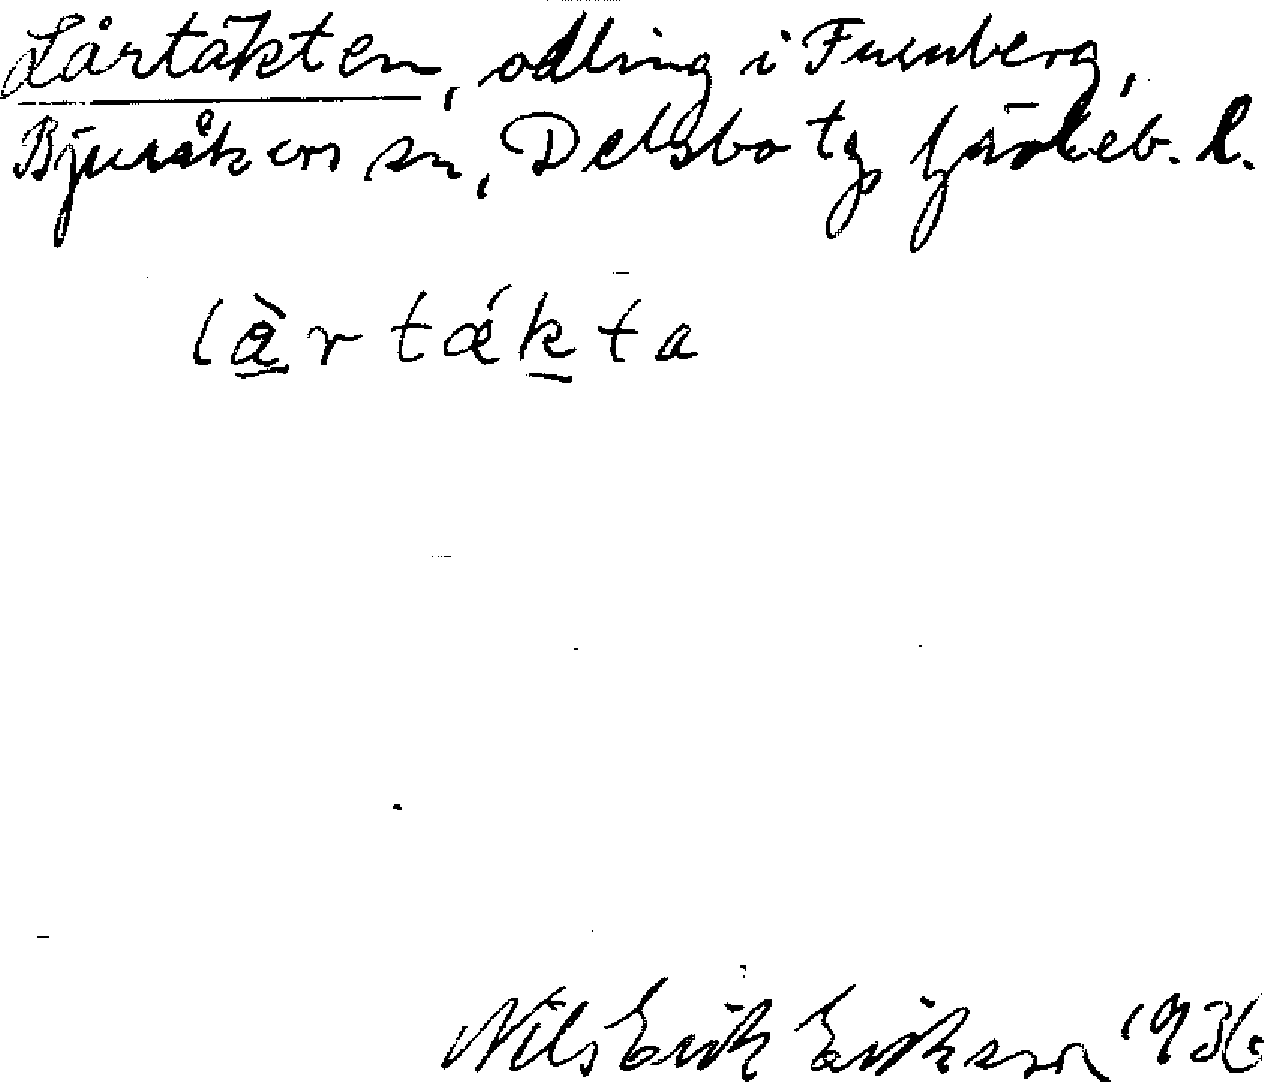 Lårtäkten, odling i Furuberg,
Bjuråkers sn, Delsbo tg, Gävleb. l.
làrtǽkta
Nils Erik Eriksson 1936